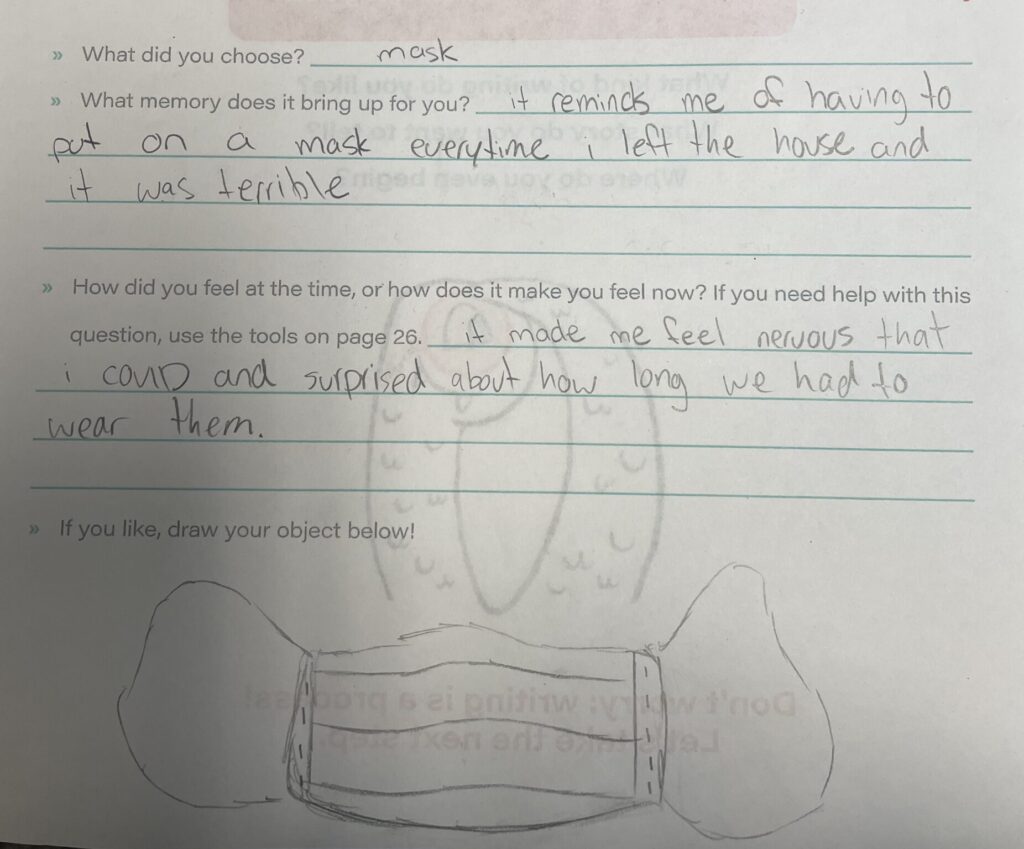 » What did you choose? mask
» What memory does it bring up for you? it reminds me of having to
put on a mask everytime i left the house and
it was terrible
» How did you feel at the time, or how does it make you feel now? If you need help with this
question, use the tools on page 26. it made me feel nervous that
i COVID and surprised about how long we had to
wear them.
» If you like, draw your object below!
Don't worry; writing is a process!
Let's take the next step.